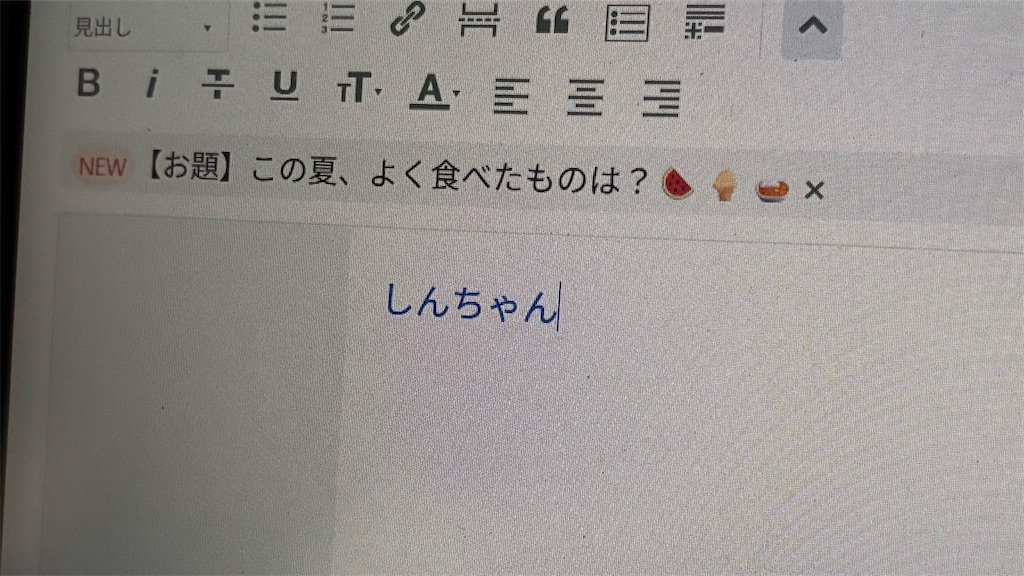 見出し
B i T U TT A
NEW 【お題】この夏、よく食べたものは？🍉🍦🍛×
しんちゃん